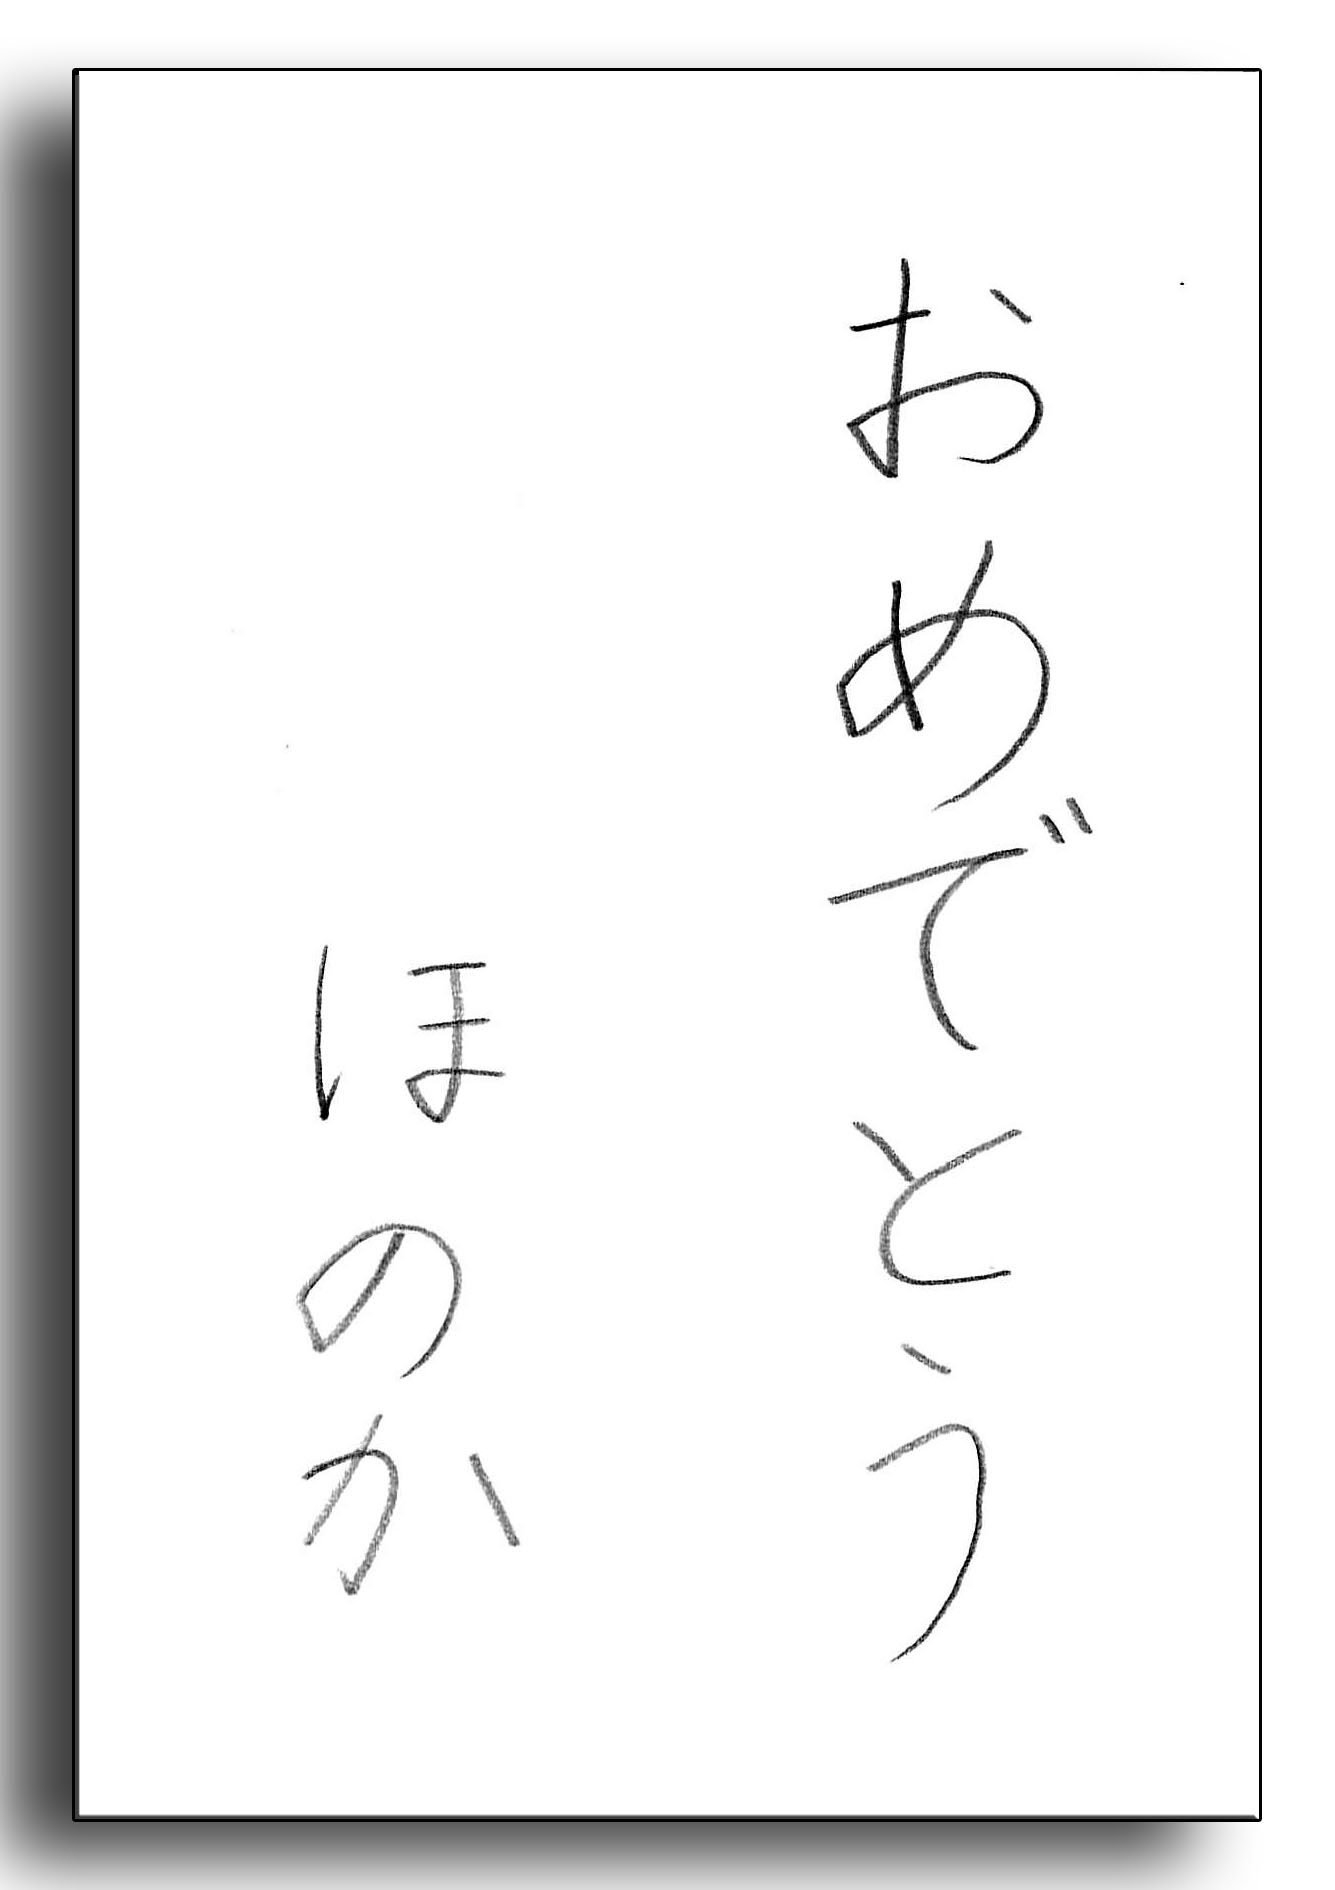 おめでとう
ほのか